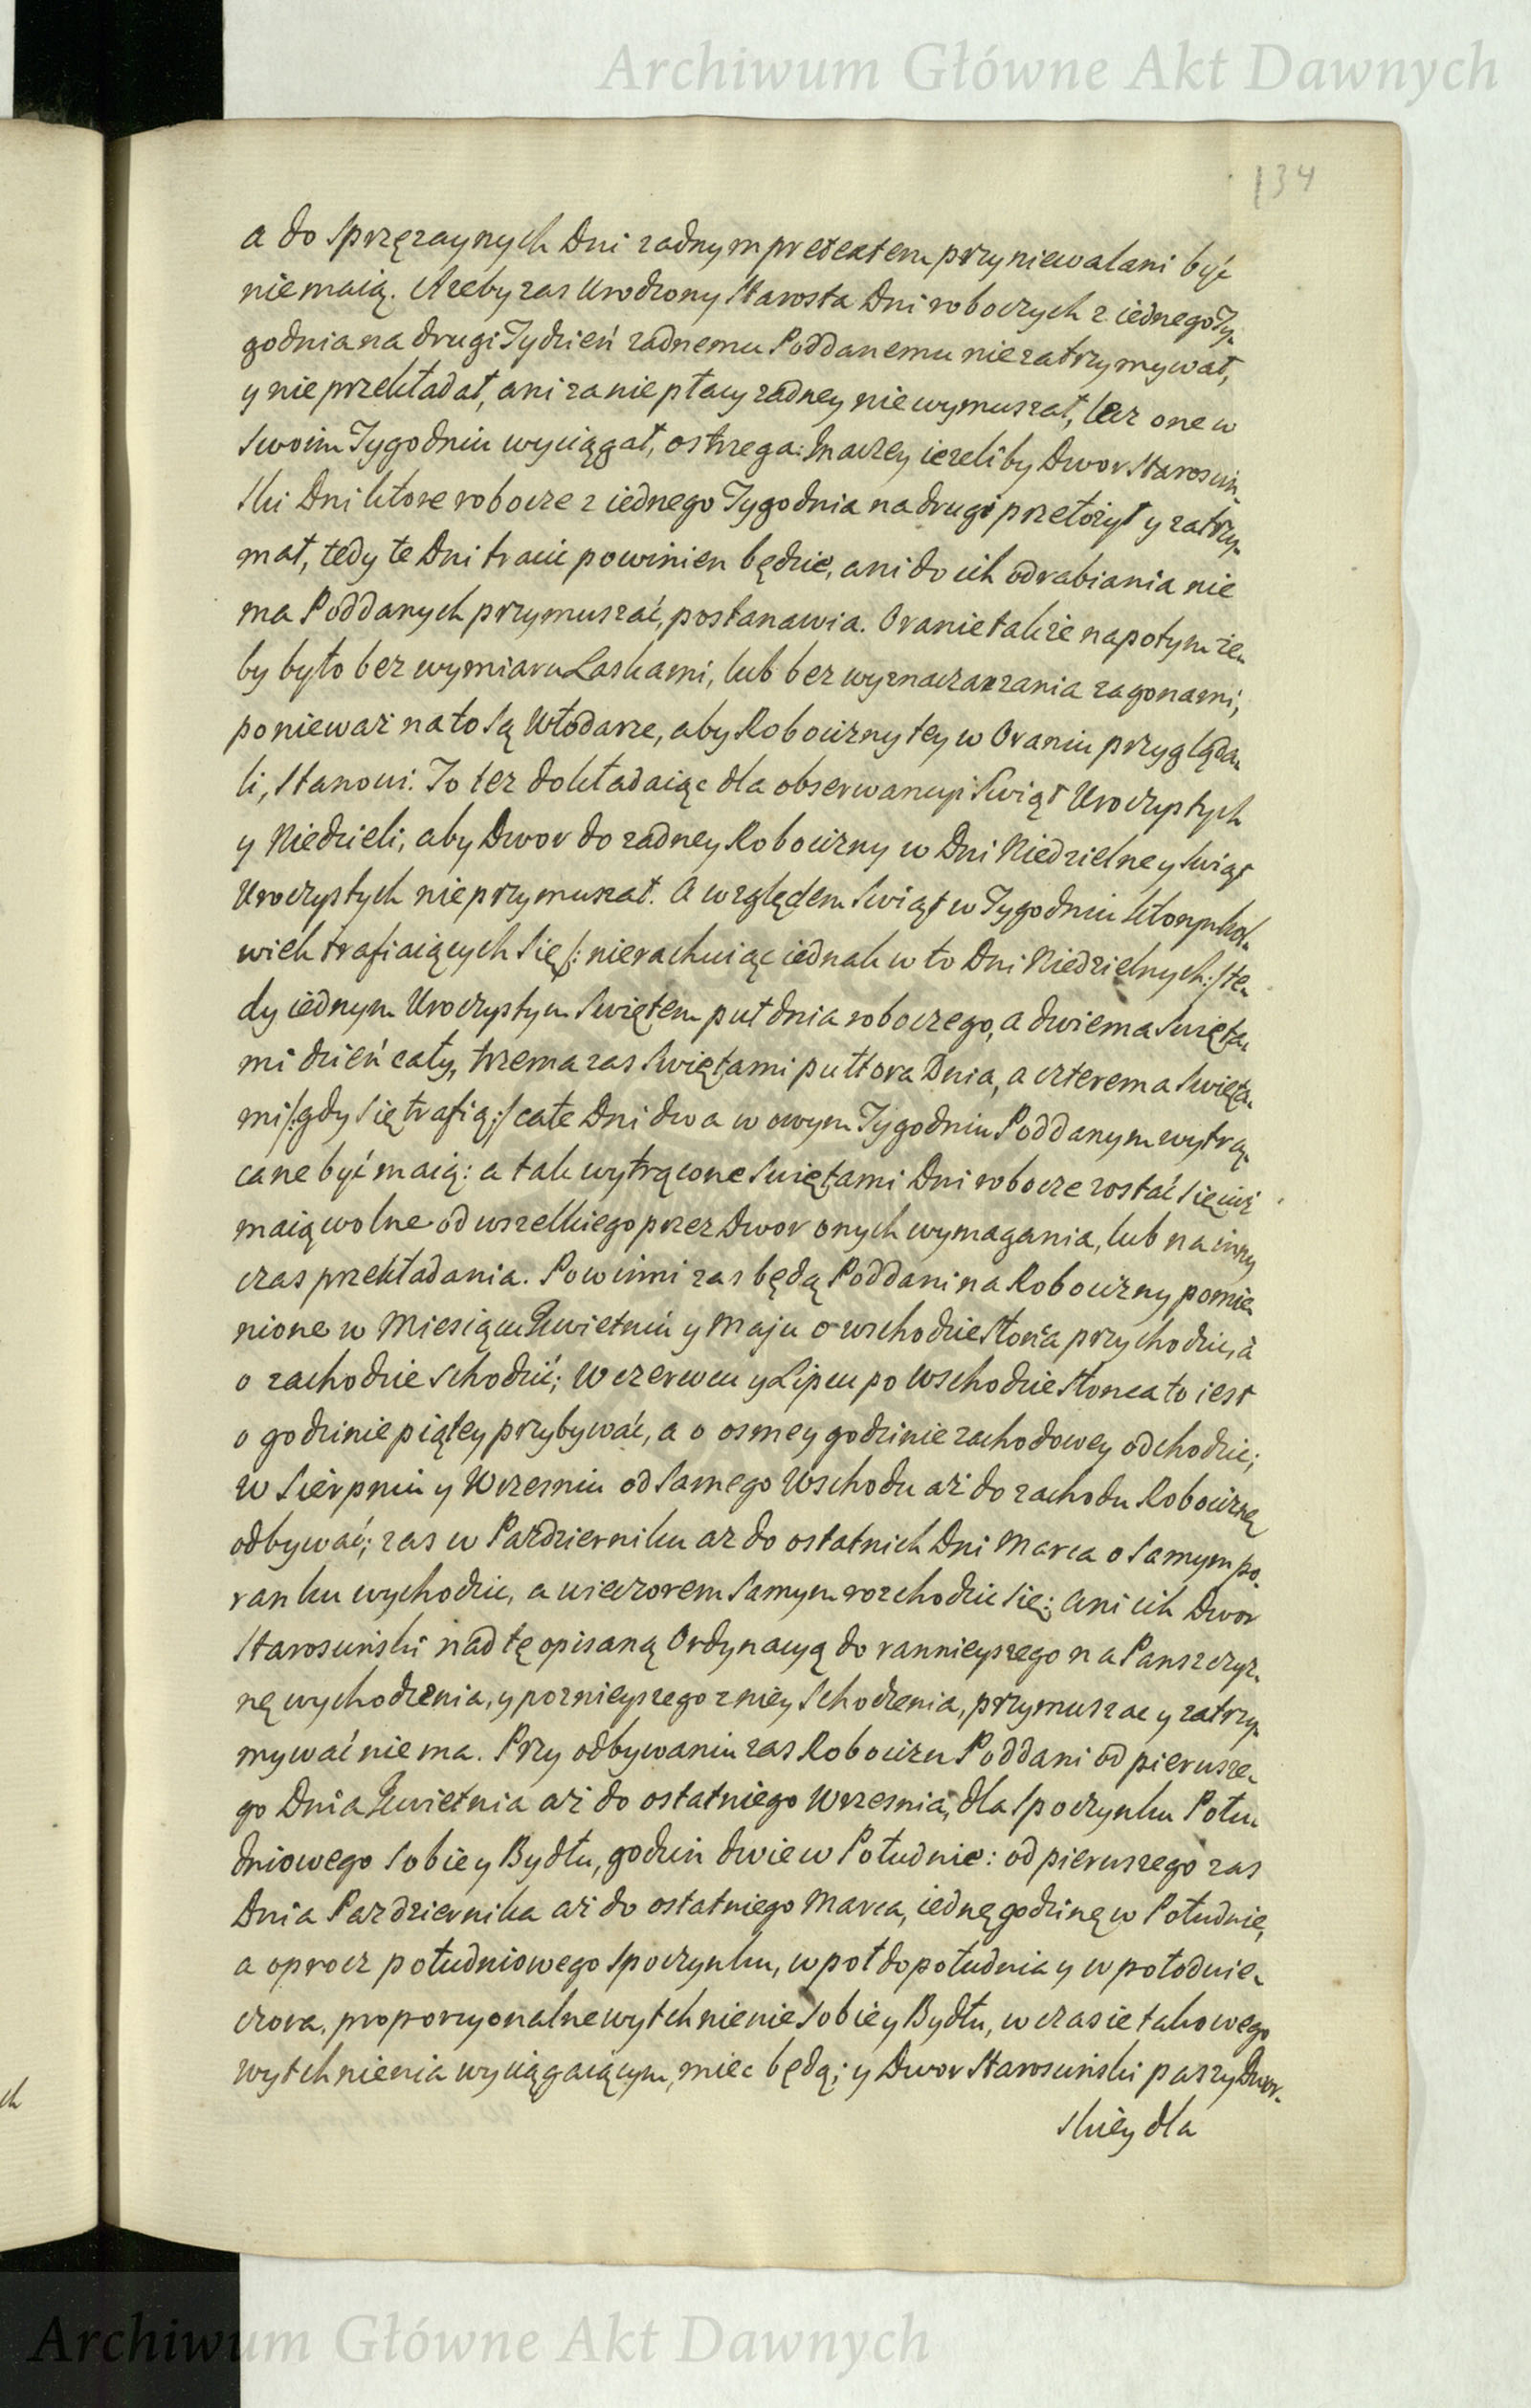 Archiwum Główne Akt Dawnych
134
a do Sprzęzaynych Dni zadnym pretextem przyniewalani być
nie maią. Azeby zas Urodzony Starosta Dni roboczych z iednego Ty-
godnia na drugi Tydzień zadnemu Poddanemu nie zatrzymywał,
y nie przekładał, ani za nie płacy zadney nie wymuszał, lecz one w
Swoim Tygodniu wyciągał, ostrzega: Inaczey iezeliby Dwor Starosciń-
ski Dni ktore robocze z iednego Tygodnia na drugi przełożył y zatrzy-
mał, tedy te Dni tracić powinien będzie, ani do ich odrabiania nie
ma Poddanych przymuszać, postanawia. Oranie także napotym ze-
by było bez wymiaru Laskami, lub bez wyznaczania zagonami,
ponieważ na to Są Włodarze, aby Robocizny tey w Oraniu przygląda-
li, Stanowi. To tez dokładaiąc dla obserwancyi Swiąt Uroczystych
y Niedzieli, aby Dwor do zadney Robocizny w Dni Niedzielne y Swiąt
Uroczystych nie przymuszał. A względem Swiąt w Tygodniu ktorymkol-
wiek trafiaiących Się /: nierachuiąc iednak w to Dni Niedzielnych :/ te-
dy iednym Uroczystym Swiętem puł dnia roboczego, a dwiema Swięta-
mi dzień cały, trzema zas Swiętami pułtora Dnia, a czterema Swięta-
mi /: gdy Się trafią :/ całe Dni dwa w owym Tygodniu Poddanym wytrą-
cane być maią: a tak wytrącone Swiętami Dni robocze zostać Się iuż
maią wolne od wszelkiego przez Dwor onych wymagania, lub na inny
czas przekładania. Powinni zas będą Poddani na Robocizny pomie-
nione w Miesiącu Kwietniu y Maju o wschodzie Słońca przychodzić, a
o zachodzie Schodzić; W czerwcu y Lipcu po Wschodzie Słonca to iest
o godzinie piątey przybywać, a o osmey godzinie zachodowey odchodzić;
w Sierpniu y Wrzesniu od Samego Wschodu aż do zachodu Robociznę
odbywać; zas w Pazdzierniku az do ostatnich Dni Marca o Samym po-
ranku wychodzić, a wieczorem Samym rozchodzić Się; ani ich Dwor
Starosciński nad tę opisaną Ordynacyą do rannieyszego na Panszczyz-
nę wychodzenia, y poznieyszego z niey Schodzenia, przymuszac y zatrzy-
mywać nie ma. Przy odbywaniu zas Robocizn Poddani od pierwsze-
go Dnia Kwietnia aż do ostatniego Wrzesnia, dla Spoczynku Połu-
dniowego Sobie y Bydłu, godzin dwie w Południe: od pierwszego zas
Dnia Pazdziernika aż do ostatniego Marca, iednę godzinę w Południe,
a oprocz południowego Spoczynku, w poł do południa y w poł od wie-
czora, proporcyonalne wytchnienie Sobie y Bydłu, w czasie takowego
wytchnienia wyciągaiącym, miec będą; y Dwor Starosciński paszy Dwor-
skiey dla
Archiwum Główne Akt Dawnych